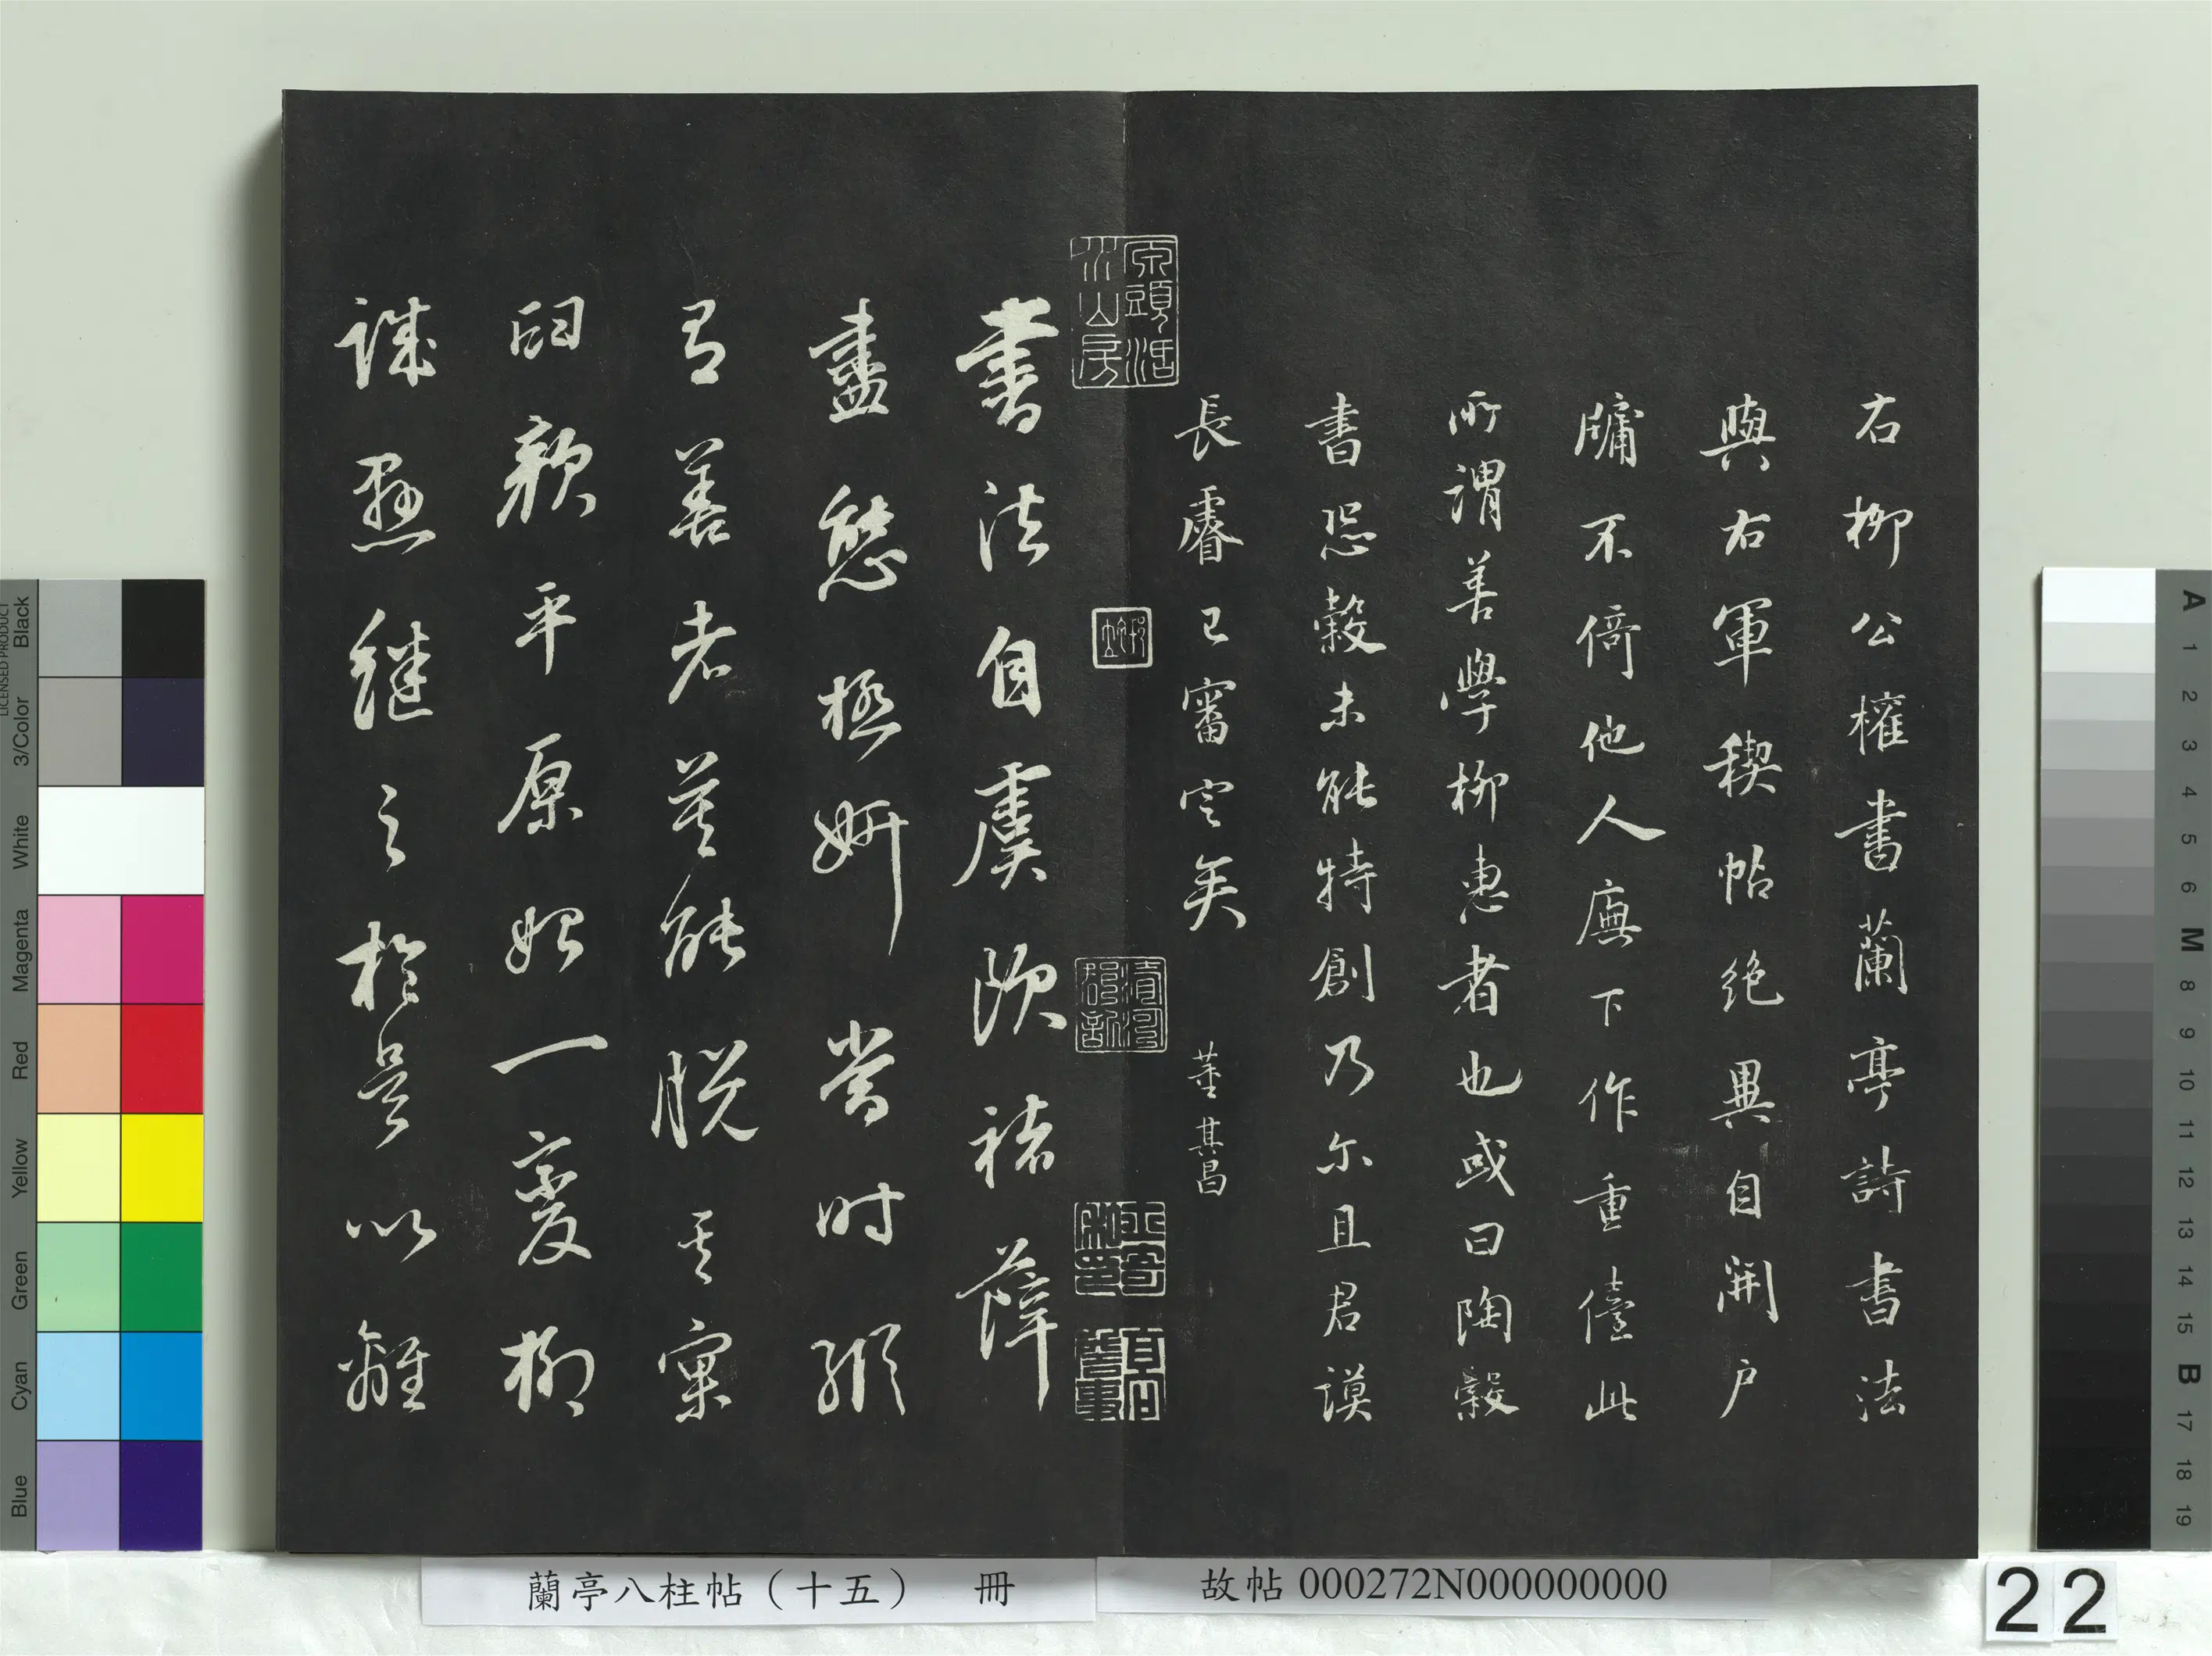 右柳公權書蘭亭詩書法
與右軍稧帖絶異自開戶
牖不倚他人廡下作重儓此
所謂善學柳惠者也或曰陶穀
書恐穀未能特創乃尔且君謨
長睿已審定矣 董其昌
書法自虞欧褚薛
盡態極妍當时縱
有善者莫能脱其窠
臼顏平原始一變柳
誠懸継之於是以離
蘭亭八柱帖（十五） 冊
故帖 000272N000000000
22
LICENSED PRODUCT
Black
3/Color
White
Magenta
Red
Yellow
Green
Cyan
Blue
A
1
2
3
4
5
6
M
8
9
10
11
12
13
14
15
B
17
18
19